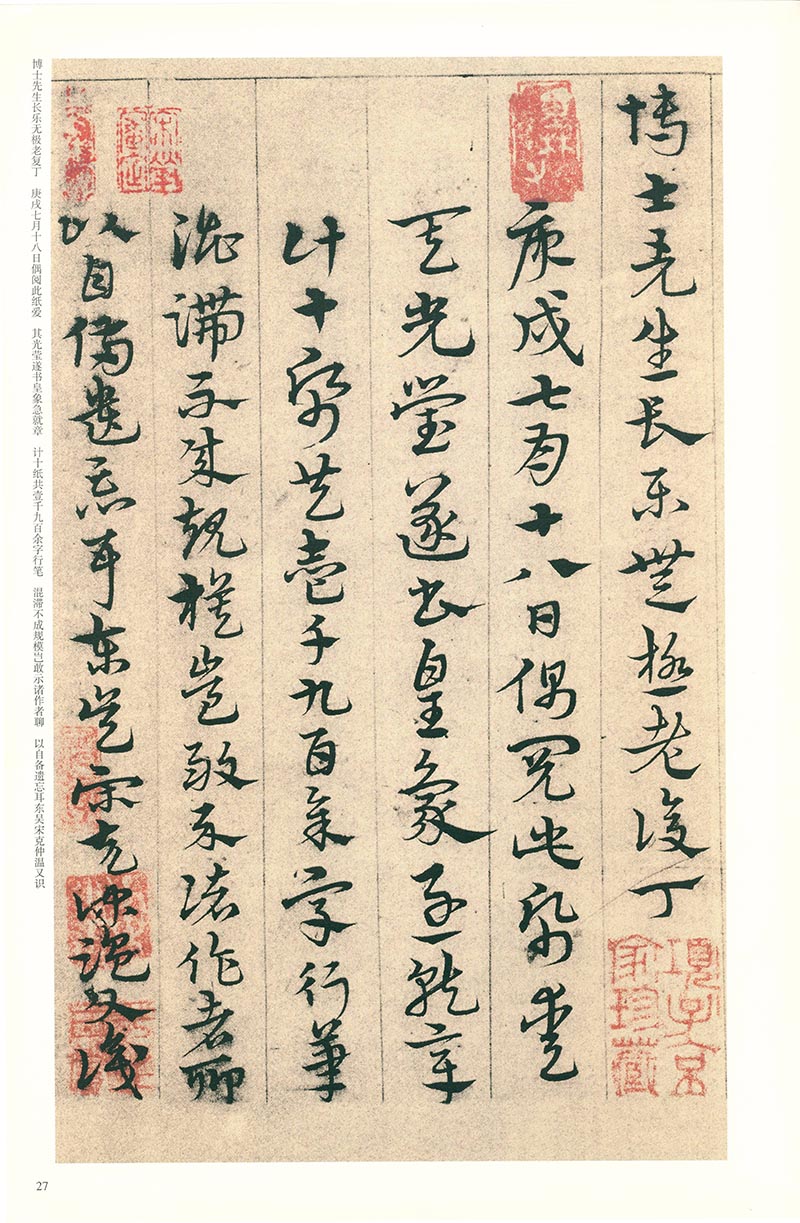 博士先生長樂無極老復丁
項子京
家珍藏
庚戌七月十八日偶閱此紙愛
其光瑩遂書皇象急就章
計十紙共壹千九百余字行筆
混滯不成規模豈敢示諸作者聊
以自備遺忘耳東吳宋克仲溫又識
博士先生长乐无极老复丁 庚戌七月十八日偶阅此纸爱 其光莹遂书皇象急就章 计十纸共壹千九百余字行笔 混滞不成规模岂敢示诸作者聊 以自备遗忘耳东吴宋克仲温又识
27